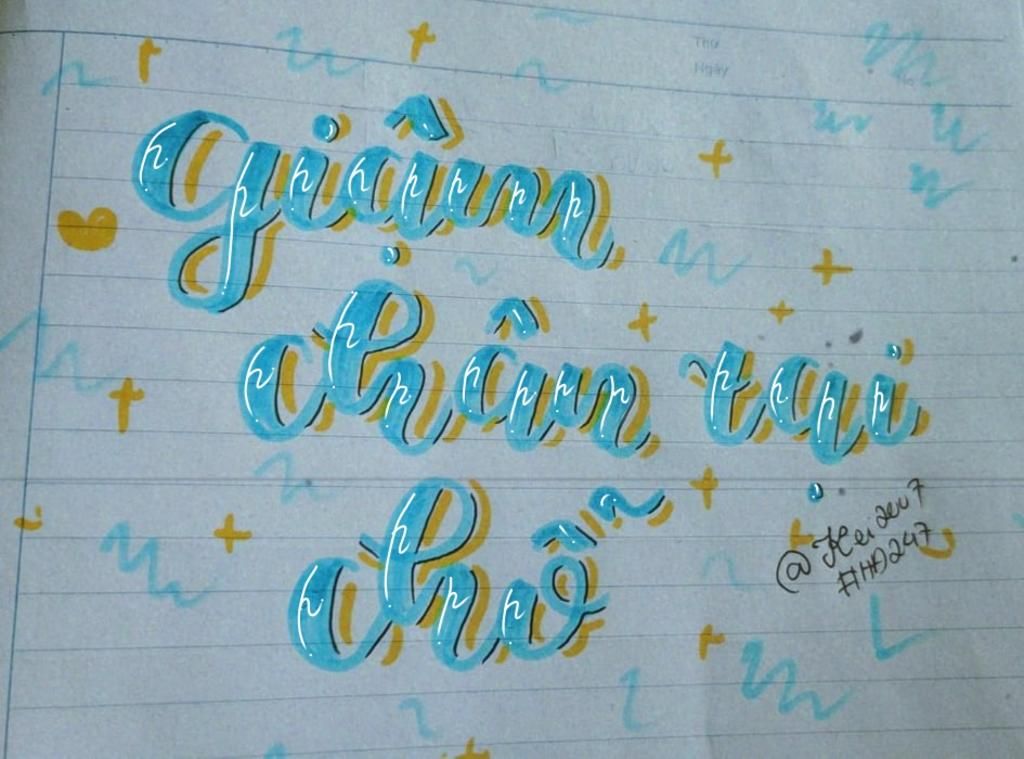 Thứ
Ngày
giậm
chân tại
chỗ
#HD247